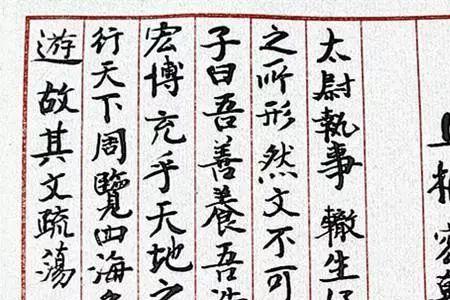 上樞密韓
太尉執事轍生好
之所形然文不可
子曰吾善養吾浩
宏博充乎天地之
行天下周覽四海
遊故其文疏蕩